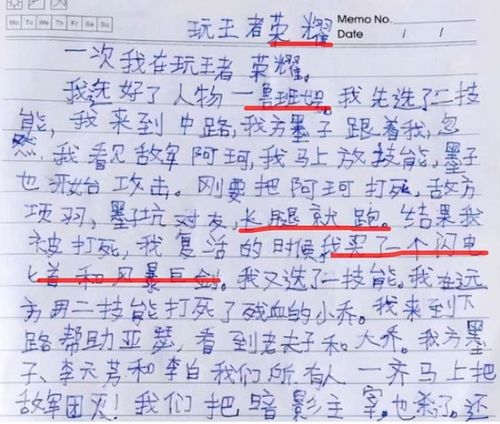 Memo No.
Mo Tu We Th Fr Sa Su
Date / /
玩王者荣耀
一次我在玩王者荣耀。
我选好了人物一鲁班,我先选了二技
能,我来到中路,我方墨子跟着我,忽
然,我看见敌军阿珂,我马上放技能,墨子
也开始攻击。刚要把阿珂打死,敌方
项羽,墨子坑对友,长腿就跑。结果我
被打死,我复活的时候,我买了一个闪电
匕首和风暴巨剑。我又选了一技能。我在远
方用二技能打死了残血的小乔。我来到下
路帮助亚瑟,看到老夫子和大乔。我方墨
子、李元芳和李白我们所有人一齐马上把
敌军团灭!我们把暗影主宰,也杀了。还